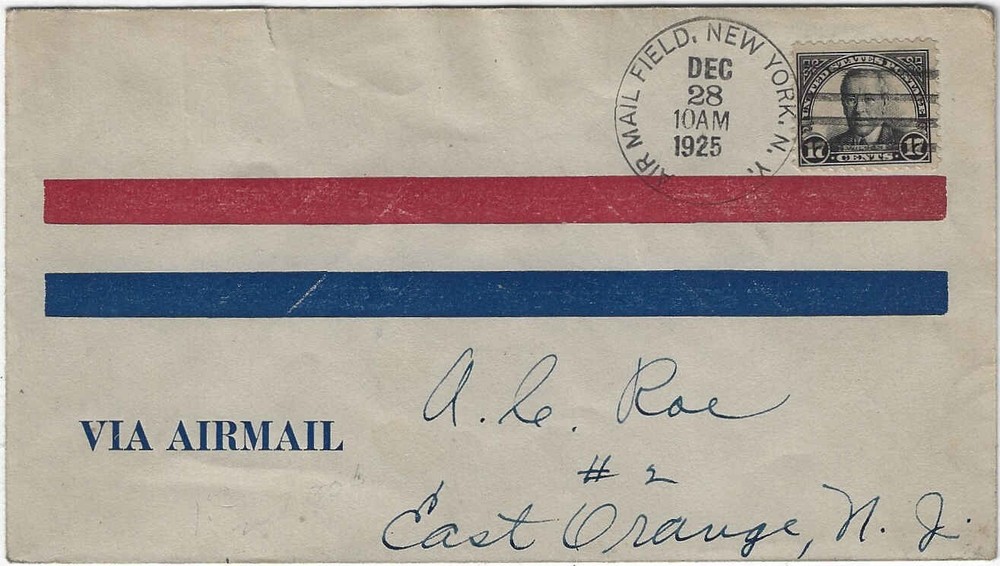 AIR MAIL FIELD, NEW YORK, N.Y.
DEC
28
10AM
1925
UNITED STATES POSTAGE
17 CENTS 17
A. C. Roe
VIA AIRMAIL
# 2
East Orange, N. J.